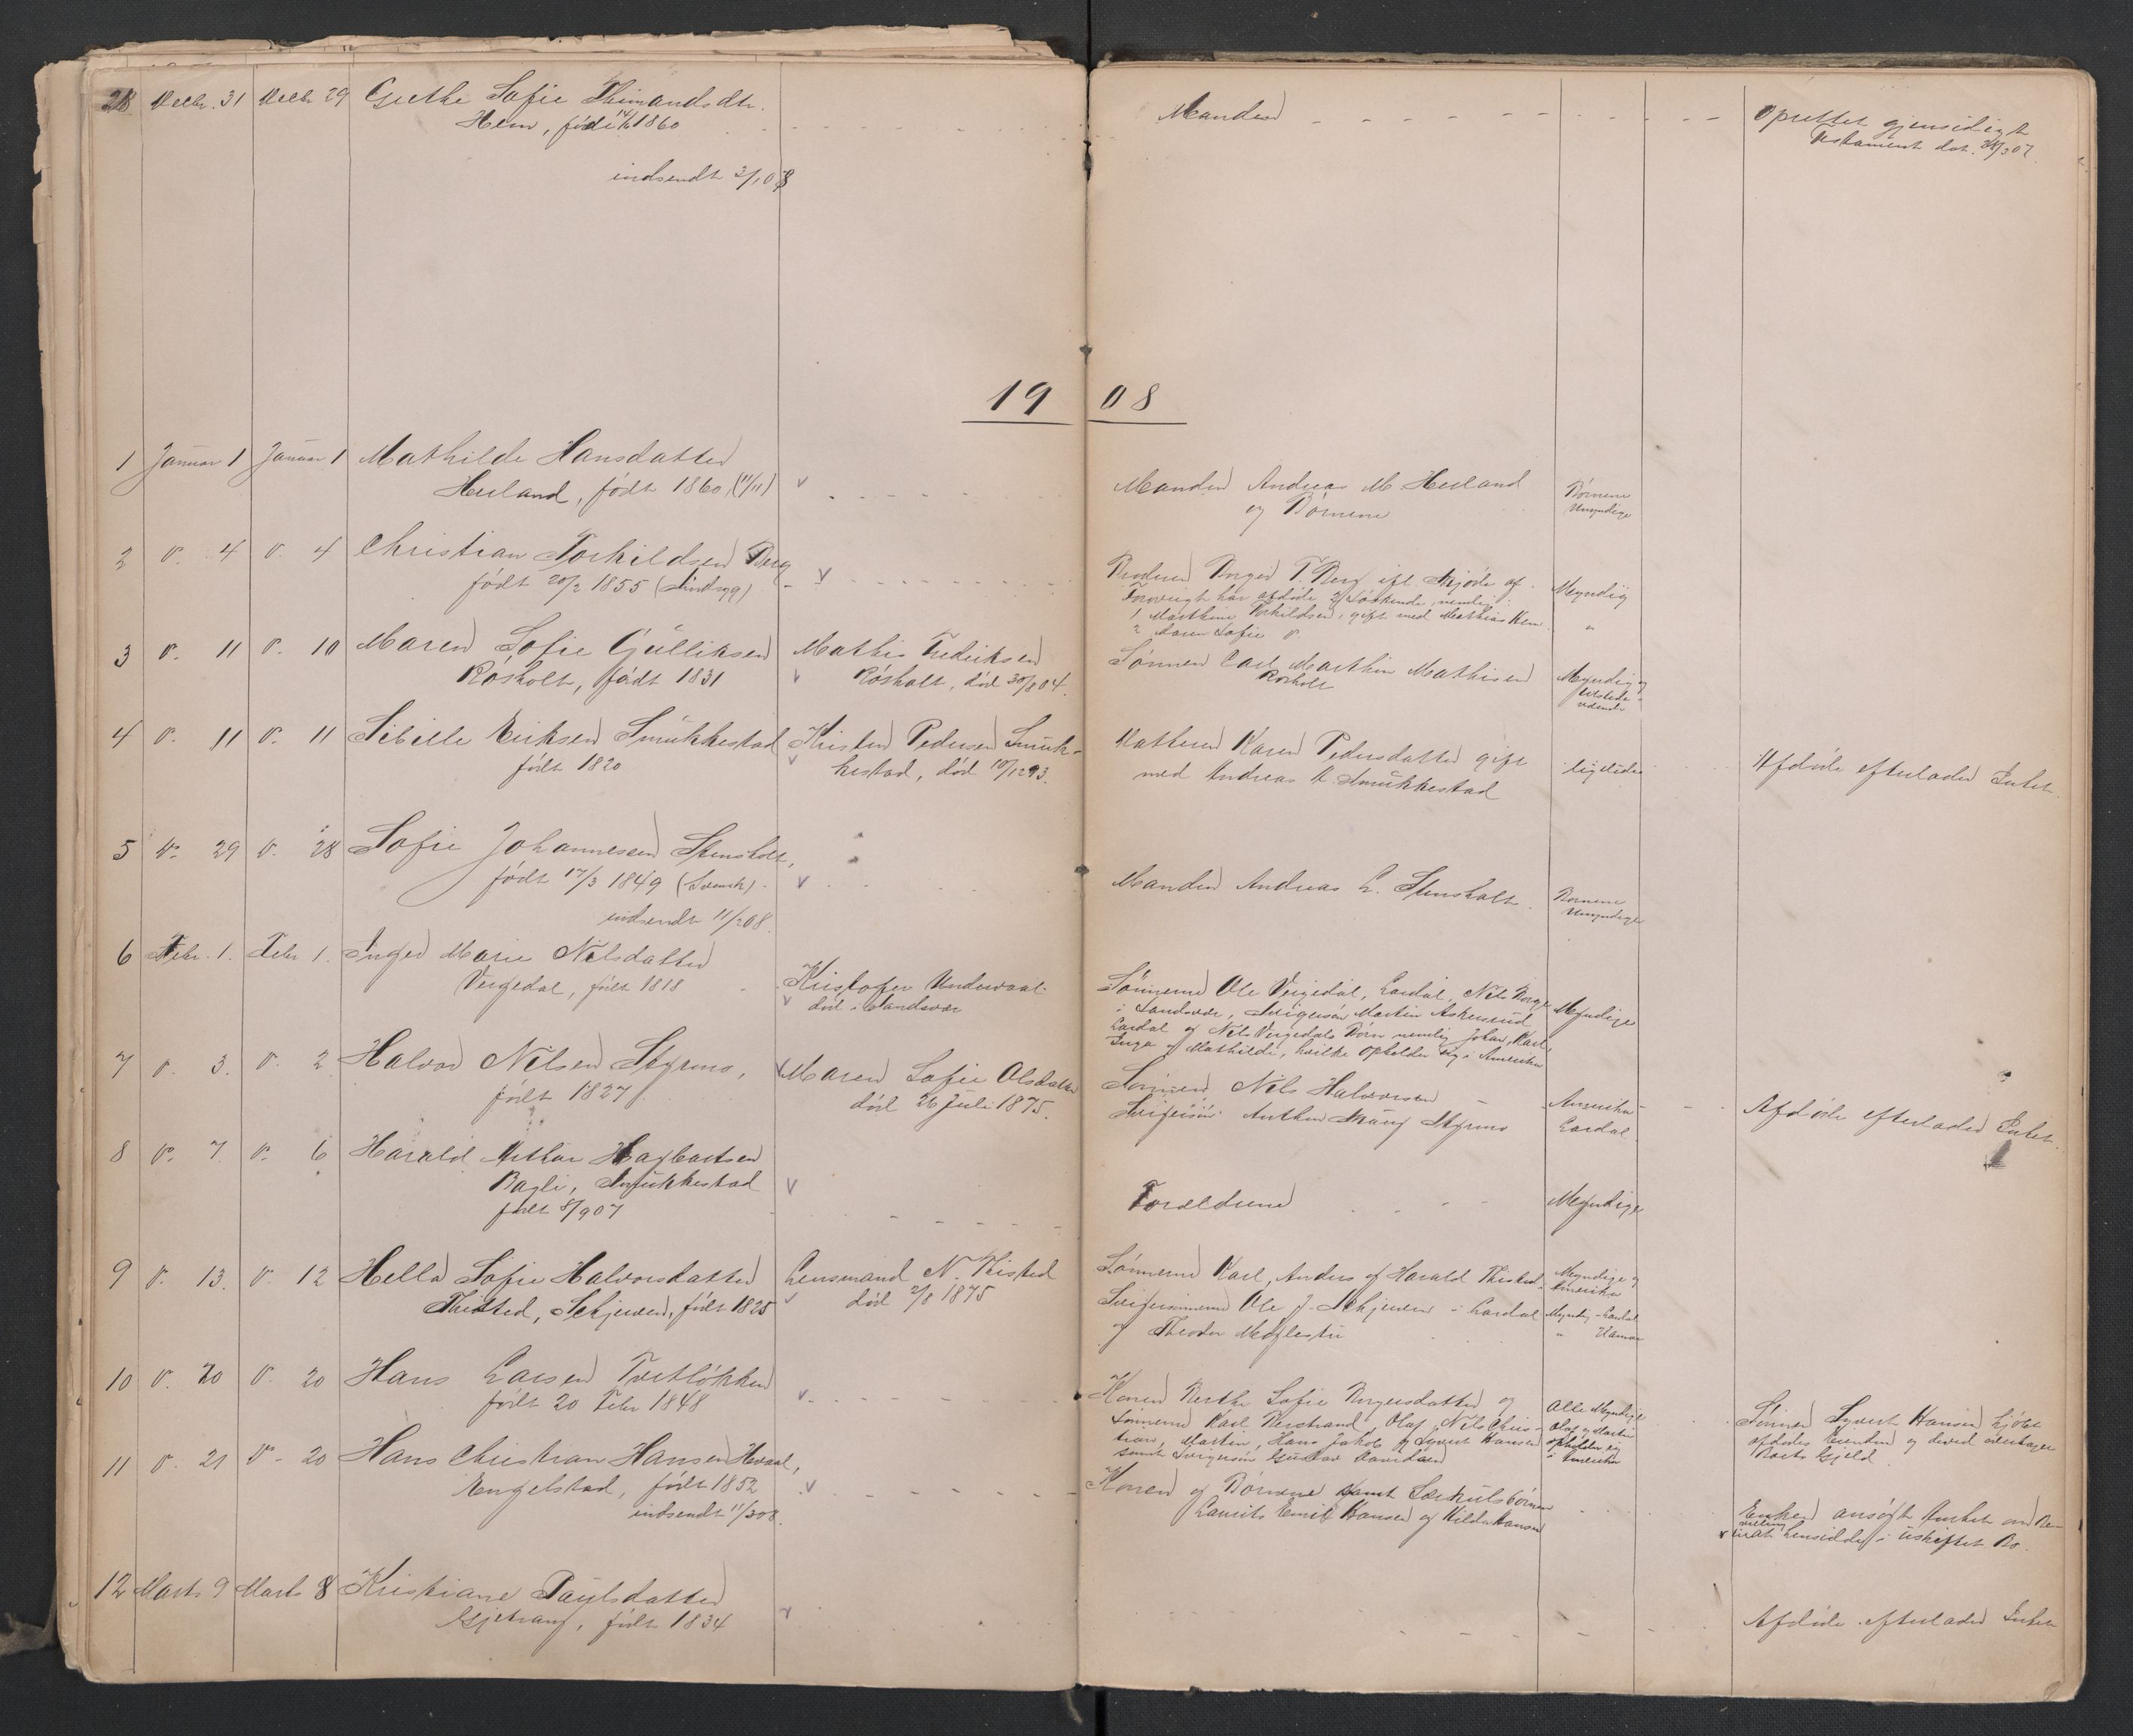 28 Decbr. 31 Decbr 29 Grethe Sofie Thimandsdtr.
Hem, født 1860
indsendt 3/1 08
Manden
Oprettet gjensidigt
Testament dat.
1908
1 Januar 1 Januar 1 Mathilde Hansdatter
Herland, født 1860, (11/11)
Manden Andreas M. Herland
og Børnene
Børnene
Umyndige
2 D. 4 D. 4 Christian Torkildsen Berg
født 20/2 1855
Broderen T. Berg igf. Skjøde af
Forøvrigt har afdøde 2 Søskende, nemlig:
1 Marthine Torkildsen, gift med Mathias Hem
2 Maren Sofie D.
Myndig
"
3 D. 11 D. 10 Maren Sofie Gulliksen
Rösholt, født 1831
Mathis Fredriksen
Rösholt, död 30/8 04.
Sønnen Carl Marthin Mathisen
Rösholt
Myndig og
4 D. 11 D. 11 Sibille Eriksen Smukkestad
født 1820
Kristen Pedersen Smuk-
kestad, död 10/12 93.
Datteren Karen Pedersdatter gift
med Andreas Smukkestad
ligeledes
Afdøde efterlader Intet.
5 D. 29 D. 28 Sofie Johannesen Stensholt,
født 17/3 1849 (Svensk)
indsendt 11/2 08.
Manden Andreas L. Stensholt
Børnene
Umyndige
6 Febr. 1. Febr 1. Inger Marie Nilsdatter
Vergedal, født 1818
Kristofer
död i Sandsvær
Sønnerne Ole Vergedal, Lardal, Nils
i Sandsvær, Svigersøn Martin Askerud
Lardal og Nils Vergedals Børn nemlig Johan, Karl,
Inga og Mathilde, hvilke opholder sig i Amerika
Myndige
7 D. 3. D. 2 Halvor Nilsen Styrmo,
født 1827
Maren Sofie Olsdatter
död 26 Juli 1875.
Sønnen Nils Halvorsen
Svigersön Anthon Styrmo
Amerika
Lardal.
Afdøde efterlader Intet.
8 D. 7. D. 6 Harald Arthur Hagbartsen
Bagli, Smukkestad
født 8/9 07
Forældrene
Myndige
9 D. 13. D. 12 Hella Sofie Halvorsdatter
Thisted, Schjerven, født 1825
Lensmand N. Thisted
död 2/8 1875
Sønnerne Karl, Anders og Harald Thisted
Svigersønnerne Ole J. Schjerven i Lardal
og Theodor
Myndige og
Amerika
Myndig - Lardal
" Hamar
10 D. 20 D. 20 Hans Larsen Tvetløkken
født 20 Febr 1848
Konen Berthe Sofie Borgersdatter og
Sønnerne Karl Olaf, Nils Chris-
tian, Martin, Hans Jakob og Syvert Hansen
samt Svigersøn Gustav Davidsen
Alle Myndige
Olaf og Martin
opholder sig
i Amerika
Sønnen Syvert Hansen kjøbt
afdødes Eiendom og derved overtager
Boets Gjeld
11 D. 21 D. 20 Hans Christian Hansen Hvaal,
Engelstad, født 1852
indsendt 11/3 08.
Konen og Børnene samt Særkulsbörnene
Laurits Emil Hansen og Hilda Hansen
Enken ansøgt Amtet om Be-
villing til at hensidde i uskiftet Bo.
12 Marts 9 Marts 8 Kristiane Paulsdatter
født 1834
Afdøde efterlader Intet